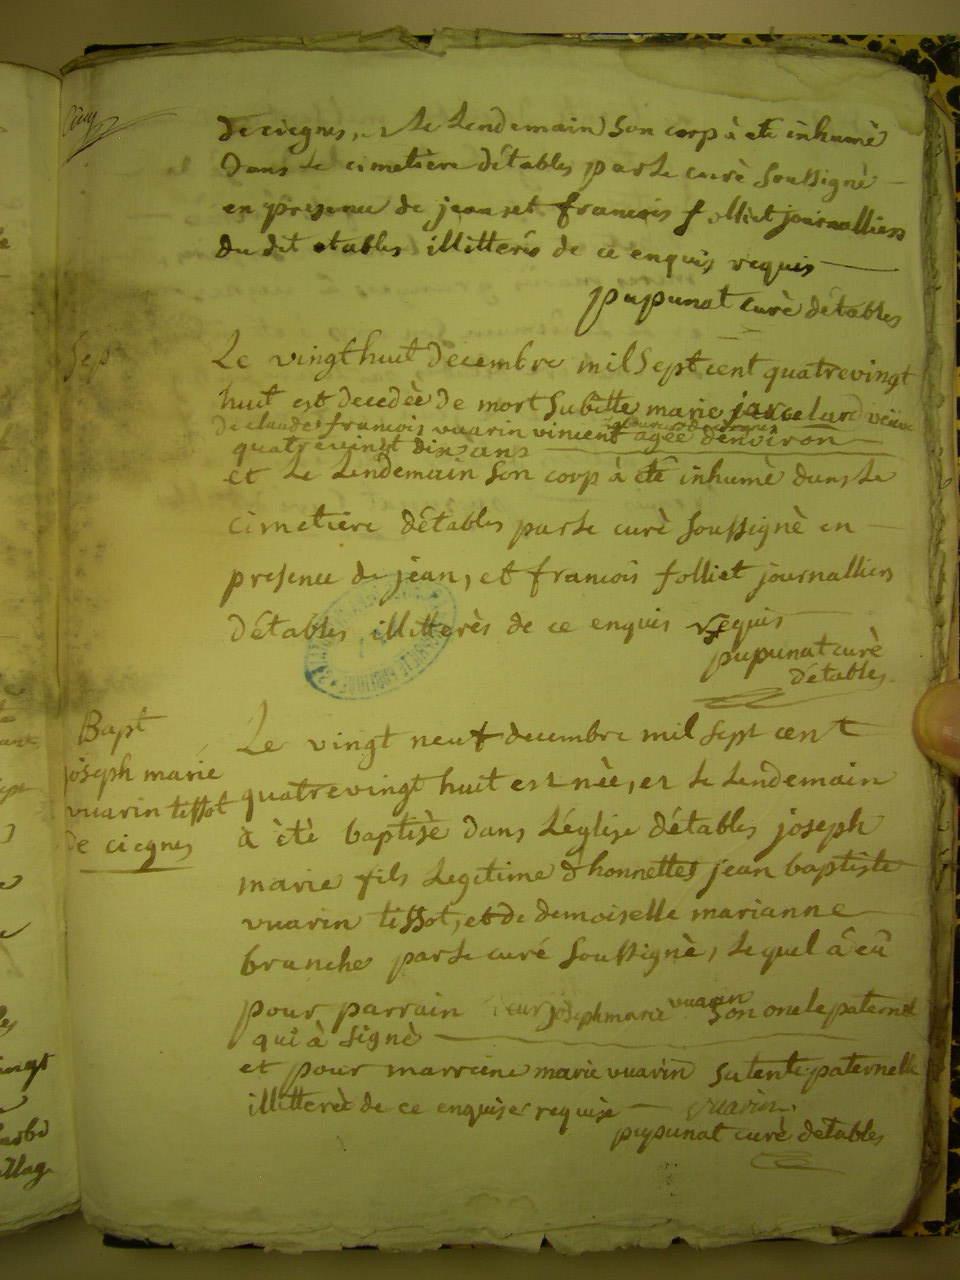 de ciegnes, Le Lendemain Son corp à eté inhumè
Dans Le cimetière détables par Le curè Soussignè
en presence de jean et francois folliet journalliers
du dit etables illitterés de ce enquis requis
pupunat curè détables
Sep
Le vingt huit decembre mil Sept cent quatrevingt
huit est decedèe de mort Subitte marie jarcelard veuve
De claude francois vuarin vincent agée dénviron
quatrevingt dix ans
et Le Lendemain Son corp à eté inhumè dans Le
cimetière détables par Le curè Soussignè en
presence de jean, et francois folliet journalliers
Détables illitterès de ce enquis requis
pupunat curè
détables
Bapt
joseph marie
vuarin tissot
de ciegnes
Le vingt neuf decembre mil Sept cent
quatrevingt huit est nèe, et Le Lendemain
à étè baptisè dans Léglise détables joseph
marie fils Legitime d'honnettes jean baptiste
vuarin tissot, et de demoiselle marianne
branche par Le curé Soussignè, Lequel à eû
pour parrain Sieur joseph marie vuarin Son oncle paternel
qui à Signè
et pour marreine marie vuarin Sa tente paternelle
illitterèe de ce enquise requise vuarin
pupunat curè détables